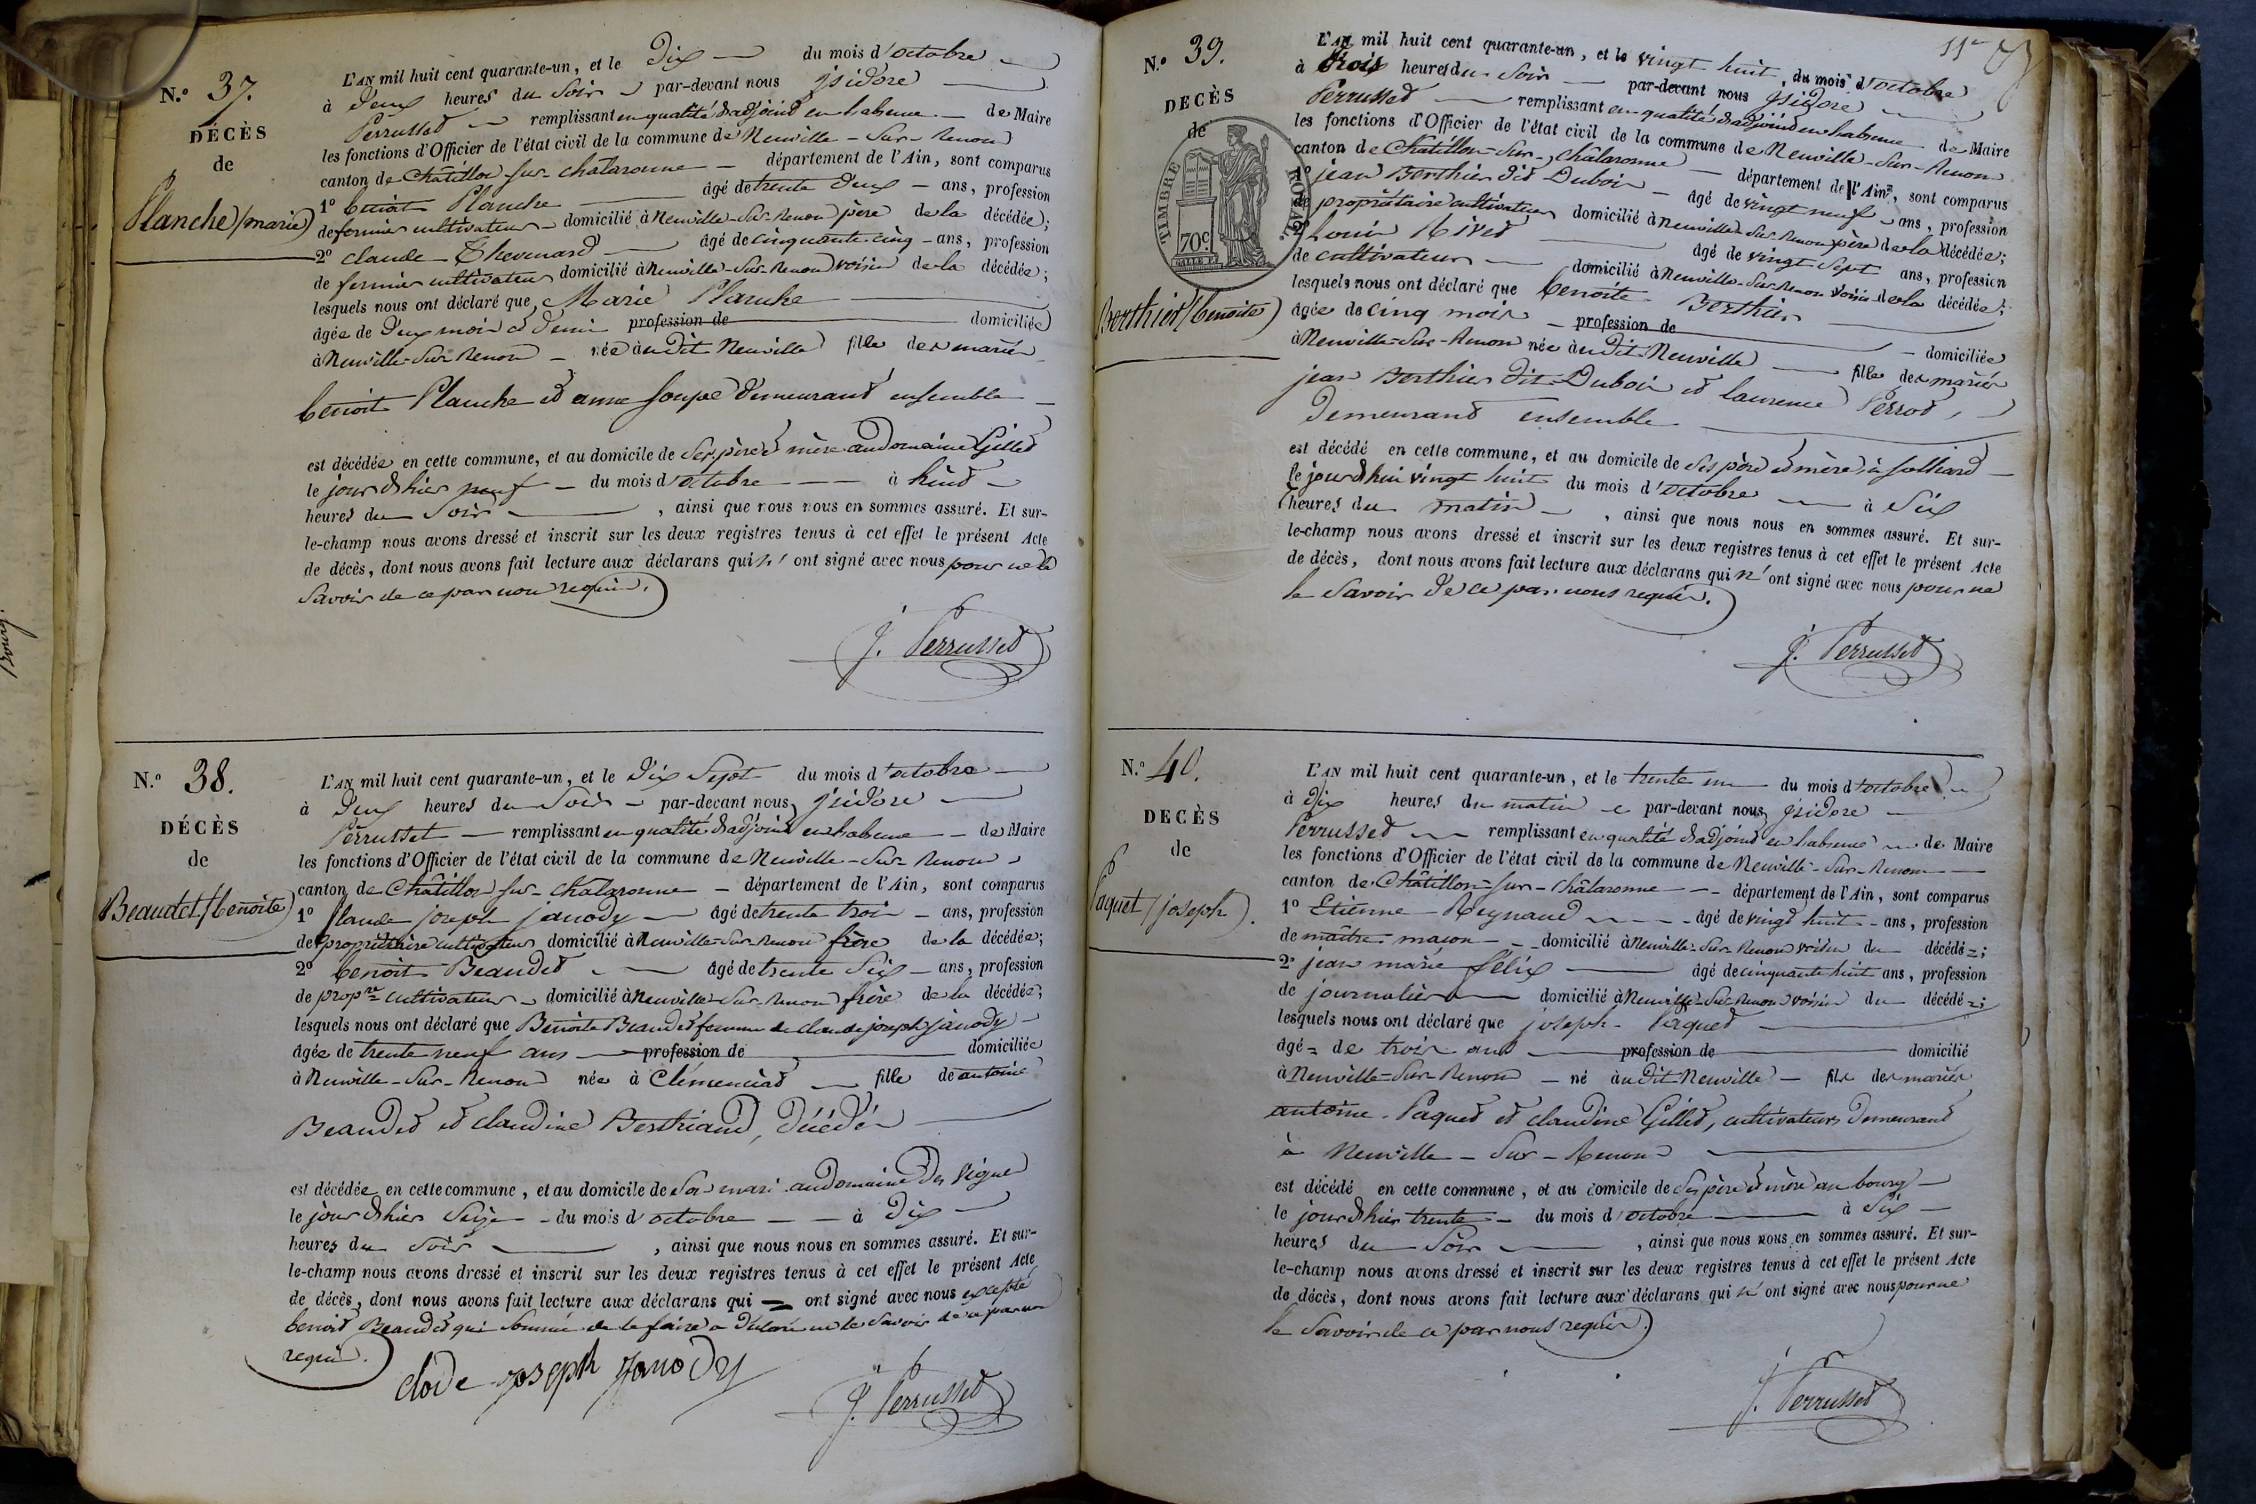 N.º 37.
DÉCÈS
de
Planche (marie)
L'AN mil huit cent quarante-un, et le Dix du mois d'octobre
à Deux heures du Soir par-devant nous jsidore
Perrusset remplissant en qualité d'adjoint en l'absence de Maire
les fonctions d'Officier de l'état civil de la commune de Neuville-Sur-Renon
canton de Châtillon sur-chalaronne département de l'Ain, sont comparus
1º benoit Planche âgé de trente deux ans, profession
de fermier cultivateur domicilié à Neuville-Sur-Renon père de la décédée;
2º claude Thevenard âgé de cinquante-cinq ans, profession
de fermier cultivateur domicilié à Neuville-Sur-Renon voisin de la décédée;
lesquels nous ont déclaré que Marie Planche
âgée de Deux mois et Demi profession de domiciliée
à Neuville-Sur-Renon née àudit Neuville fille des mariés
benoit Planche et anne Soupe Demeurant ensemble
est décédée en cette commune, et au domicile de Ses père & mère au Domaine Gillet
le jour d'hier neuf du mois d'octobre à huit
heures du Soir, ainsi que nous nous en sommes assuré. Et sur-
le-champ nous avons dressé et inscrit sur les deux registres tenus à cet effet le présent Acte
de décès, dont nous avons fait lecture aux déclarans qui n'ont signé avec nous pour ne le
Savoir de ce par nous requis.
J. Perrusset
N.º 38.
DÉCÈS
de
Beaudet (benoite)
L'AN mil huit cent quarante-un, et le Dix Sept du mois d'octobre
à Deux heures du Soir par-devant nous, jsidore
Perrusset remplissant en qualité d'adjoint en l'absence de Maire
les fonctions d'Officier de l'état civil de la commune de Neuville-Sur-Renon
canton de Châtillon sur-chalaronne département de l'Ain, sont comparus
1º Claude joseph janody âgé de trente trois ans, profession
de propriétaire cultivateur domicilié à Neuville-Sur-Renon frère de la décédée;
2º benoit Beaudet âgé de trente Six ans, profession
de propre cultivateur domicilié à Neuville-Sur-Renon frère de la décédée;
lesquels nous ont déclaré que Benoite Beaudet femme de claude joseph janody
âgée de trente neuf ans profession de domiciliée
à Neuville-Sur-Renon née à Clémenciat fille de antoine
Beaudet et claudine Berthiaud, Décédés
est décédée en cette commune, et au domicile de Son mari au Domaine Des Vignes
le jour d'hier Seize du mois d'octobre à Dix
heures du Soir, ainsi que nous nous en sommes assuré. Et sur-
le-champ nous avons dressé et inscrit sur les deux registres tenus à cet effet le présent Acte
de décès, dont nous avons fait lecture aux déclarans qui ont signé avec nous excepté
benoit Beaudet qui Sommé de le faire a Déclaré ne le Savoir de ce par nous
requis.
clode joseph janody
J. Perrusset
11e
N.º 39.
DÉCÈS
de
TIMBRE ROYAL
70c
Berthier (benoite)
L'AN mil huit cent quarante-un, et le vingt huit, du mois d'octobre
à trois heures du Soir par-devant nous jsidore
Perrusset remplissant en qualité d'adjoint en l'absence de Maire
les fonctions d'Officier de l'état civil de la commune de Neuville-Sur-Renon
canton de Châtillon-Sur-Châlaronne département de l'Ain, sont comparus
1º jean Berthier dit Dubois âgé de vingt neuf ans, profession
de propriétaire cultivateur domicilié à Neuville-Sur-Renon père de la décédée;
2º Louis Nivet âgé de vingt Sept ans, profession
de cultivateur domicilié à Neuville-Sur-Renon voisin de la décédée;
lesquels nous ont déclaré que benoite Berthier
âgée de cinq mois profession de domiciliée
à Neuville-Sur-Renon née àudit Neuville fille des mariés
jean Berthier dit Dubois et laurence Perrot,
Demeurant ensemble
est décédé en cette commune, et au domicile de Ses père et mère, à
le jourd'hui vingt huit du mois d'octobre à Six
heures du matin, ainsi que nous nous en sommes assuré. Et sur-
le-champ nous avons dressé et inscrit sur les deux registres tenus à cet effet le présent Acte
de décès, dont nous avons fait lecture aux déclarans qui n'ont signé avec nous pour ne
le Savoir de ce par nous requis.
J. Perrusset
N.º 40.
DÉCÈS
de
Paquet (joseph).
L'AN mil huit cent quarante-un, et le trente un du mois d'octobre
à Dix heures du matin par-devant nous, jsidore
Perrusset remplissant en qualité d'adjoint en l'absence de Maire
les fonctions d'Officier de l'état civil de la commune de Neuville-Sur-Renon
canton de Châtillon-sur-Châlaronne département de l'Ain, sont comparus
1º Etienne Reynaud âgé de vingt huit ans, profession
de maître maçon domicilié à Neuville-Sur-Renon voisin du décédé;
2º jean marie félix âgé de cinquante huit ans, profession
de journalier domicilié à Neuville-Sur-Renon voisin du décédé;
lesquels nous ont déclaré que joseph Paquet
âgé de trois ans profession de domicilié
à Neuville-Sur-Renon né àudit Neuville fils des mariés
antoine Paquet et claudine Gillet, cultivateurs Demeurant
à Neuville-Sur-Renon
est décédé en cette commune, et au domicile de Ses père & mère au bourg
le jour d'hier trente du mois d'octobre à Six
heures du Soir, ainsi que nous nous en sommes assuré. Et sur-
le-champ nous avons dressé et inscrit sur les deux registres tenus à cet effet le présent Acte
de décès, dont nous avons fait lecture aux déclarans qui n'ont signé avec nous pour ne
le Savoir de ce par nous requis.
J. Perrusset